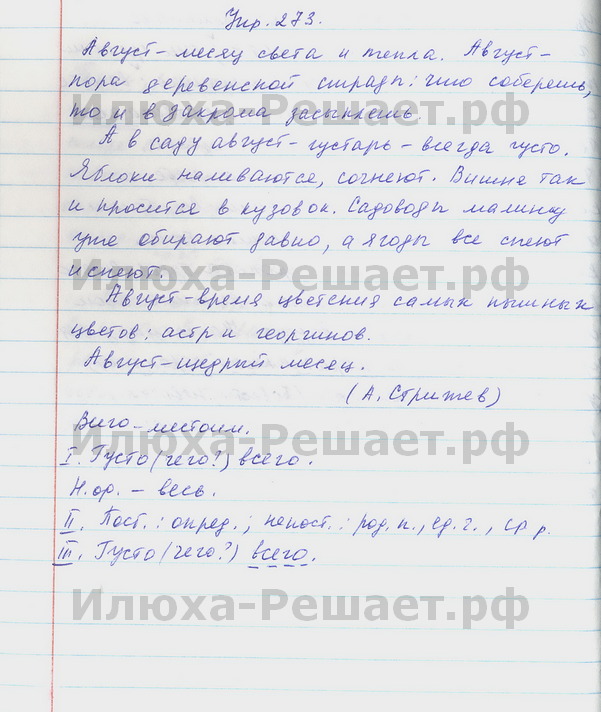 Упр. 273.
Август – месяц света и тепла. Август –
пора деревенской страды: что соберешь,
то и в закрома засыплешь.
А в саду август – густарь – всегда густо.
Яблоки наливаются, согнеют. Вишня так
и просится в кузовок. Садоводы малину
уже обирают давно, а ягоды все спеют
и спеют.
Август – время цветения самых пышных
цветов: астр и георгинов.
Август – щедрый месяц.
(А. Стрижев)
Всего – местоим.
I. Густо (чего?) всего.
Н.ф. – весь.
II. Пост.: опред.; непост.: род. п., ед. ч., ср р.
III. Густо (чего?) всего.
Илюха-Решает.рф
Илюха-Решает.рф
Илюха-Решает.рф
Илюха-Решает.рф